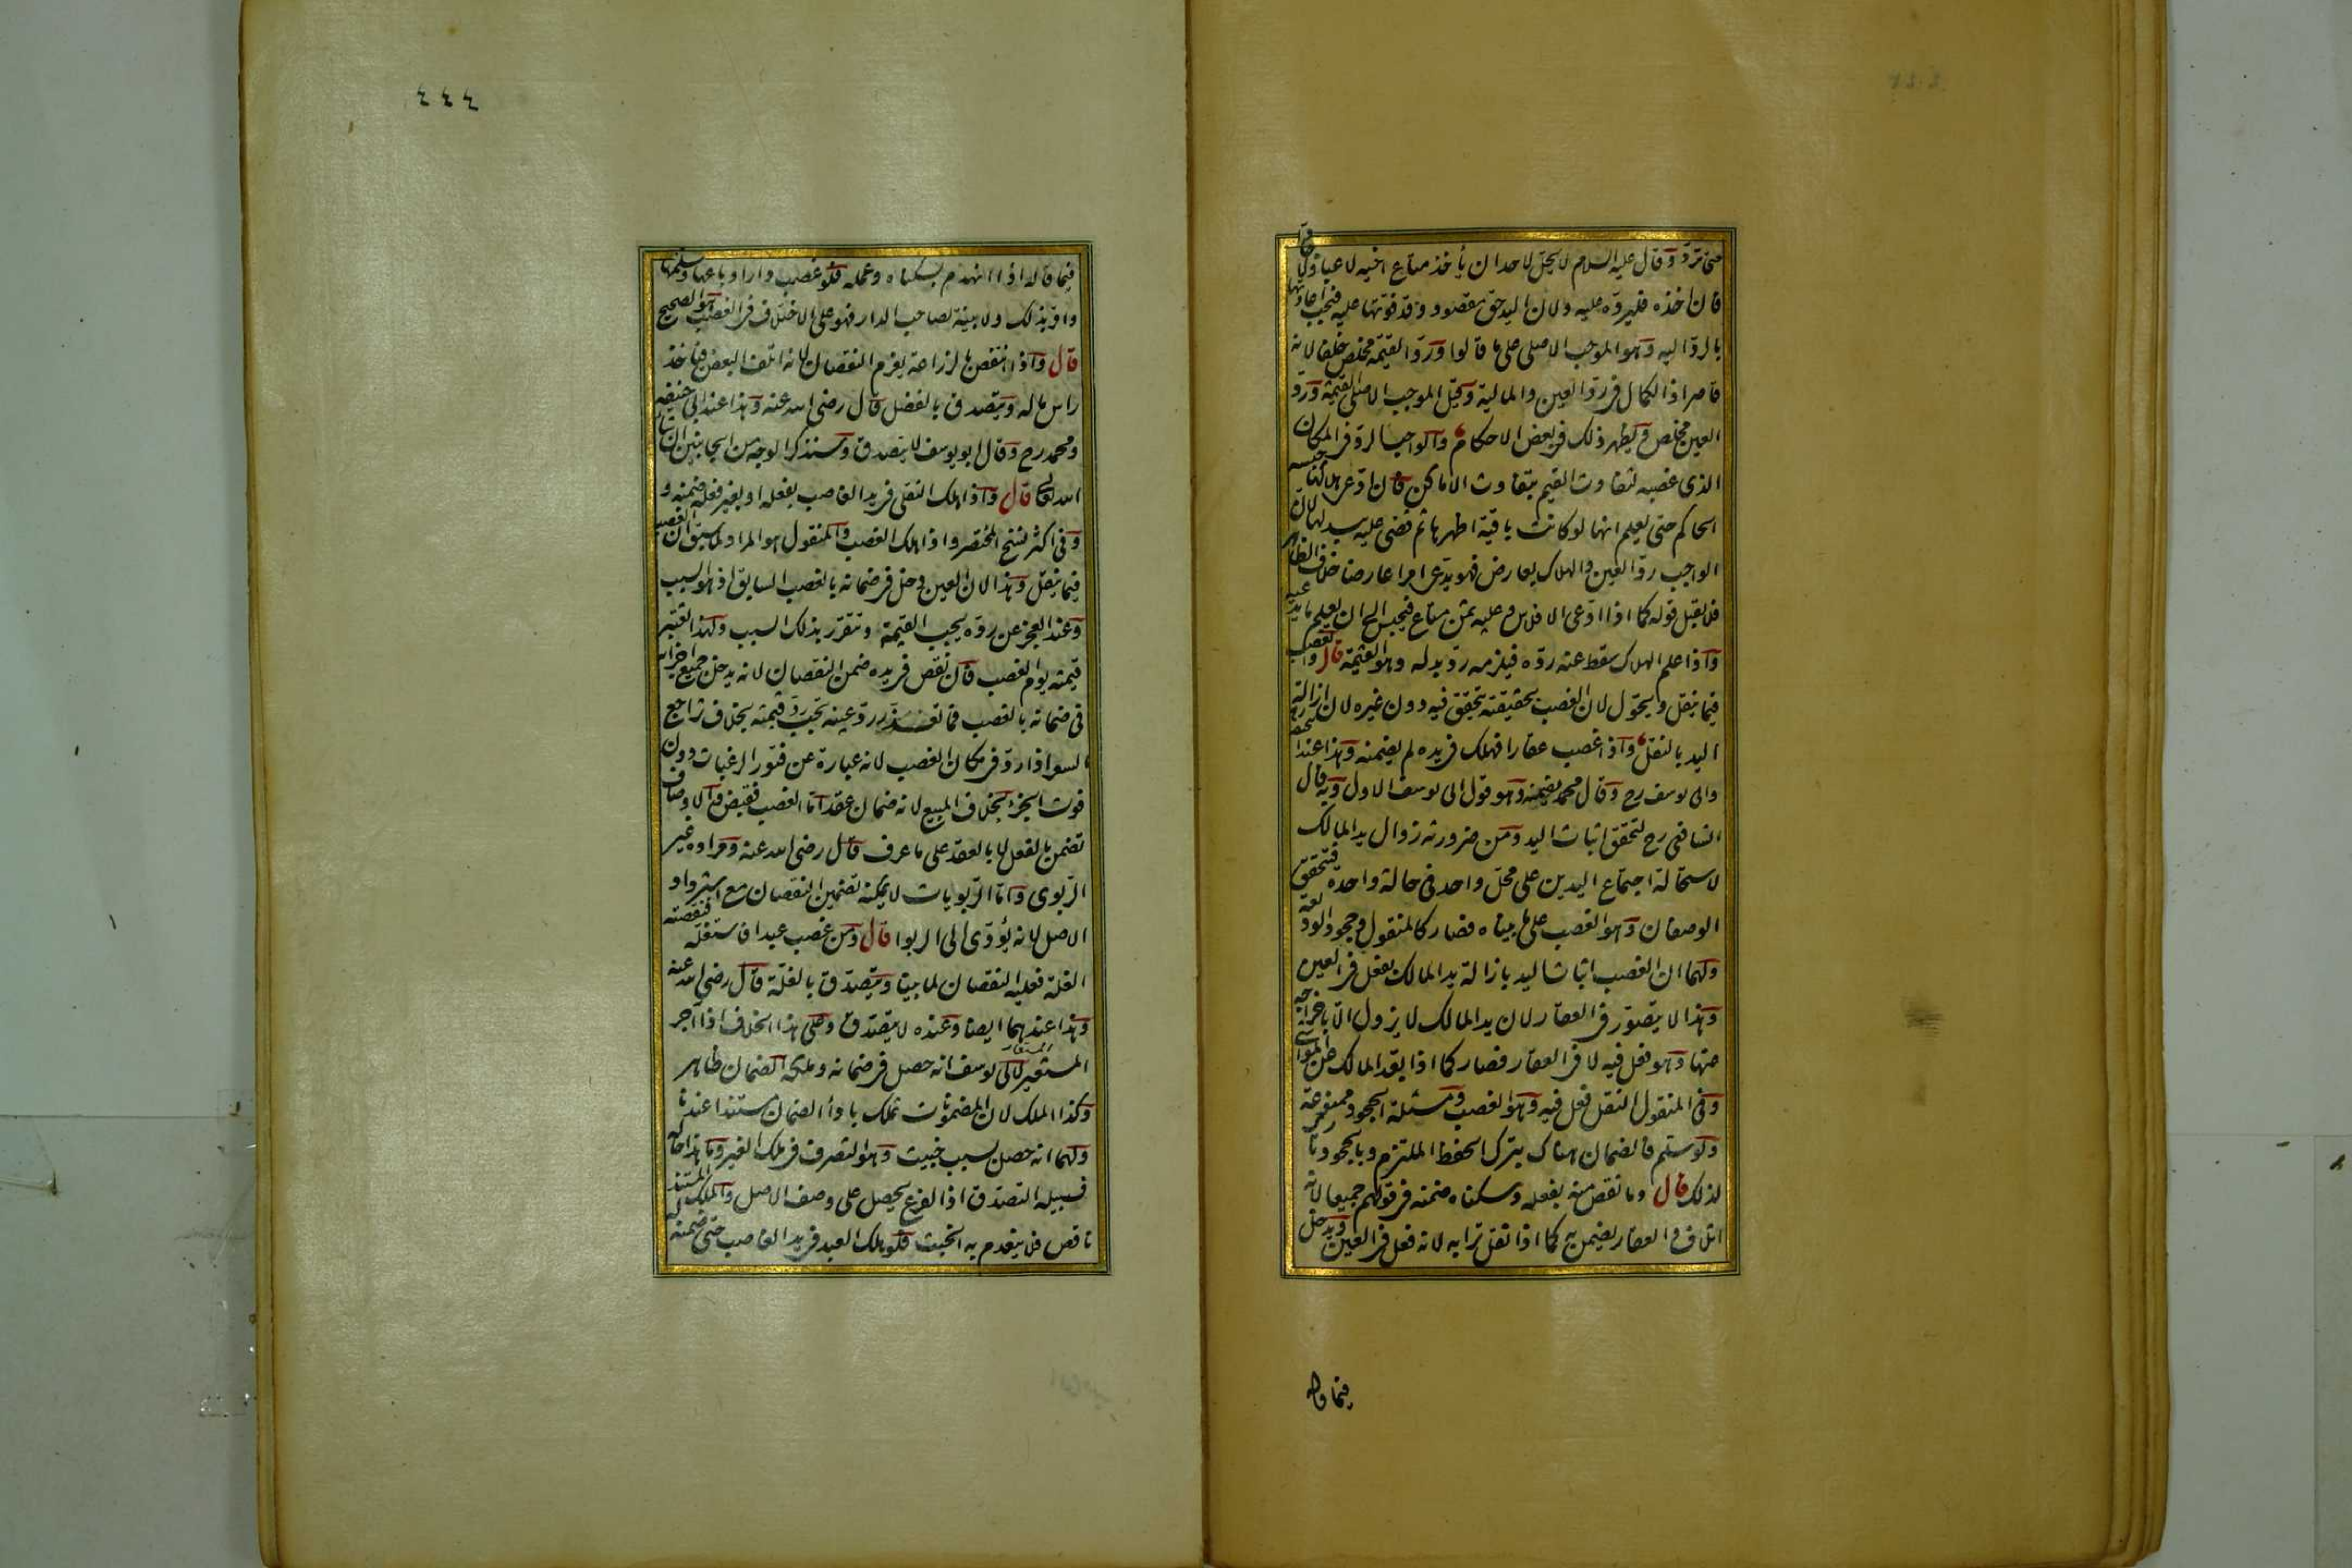 حتى ترد وقال عليه السلام لا يحل لاحد ان يأخذ متاع اخيه لاعبا ولا جادا
فان اخذه فليرده عليه ولان اليد حق مقصود وقد فوتها عليه فيجب اعادتها
بالرد اليه وهو الموجب الاصلي على ما قالوا ورد القيمة مخلص خلفا لانه
قاصر اذ الكمال في رد العين والمالية وقيل الموجب الاصلي القيمة ورد
العين مخلص ويظهر ذلك في بعض الاحكام والواجب الرد في المكان
الذي غصبه لتفاوت القيم بتفاوت الاماكن فان ادعى هلاكها حبسه
الحاكم حتى يعلم انها لو كانت باقية اظهرها ثم قضى عليه ببدلها لان
الواجب رد العين والهلاك بعارض فهو يدعي امرا عارضا خلاف الظاهر
فلا يقبل قوله كما اذا ادعى الافلاس وعليه ثمن متاع فيحبس الى ان يعلم ما يدعيه
واذا علم الهلاك سقط عنه رده فيلزمه رد بدله وهو القيمة قال والغصب
فيما ينقل ويحول لان الغصب بحقيقته يتحقق فيه دون غيره لان ازالة
اليد بالنقل واذا غصب عقارا فهلك في يده لم يضمنه وهذا عند ابي حنيفة
وابي يوسف رح وقال محمد يضمنه وهو قول ابي يوسف الاول وبه قال
الشافعي رح لتحقق اثبات اليد ومن ضرورته زوال يد المالك
لاستحالة اجتماع اليدين على محل واحد في حالة واحدة فتحقق
الوصفان وهو الغصب على ما بيناه فصار كالمنقول وجحود الوديعة
ولهما ان الغصب اثبات اليد بازالة يد المالك بفعل في العين
وهذا لا يتصور في العقار لان يد المالك لا يزول الا باخراجه
عنها وهو فعل فيه لا في العقار فصار كما اذا بعد المالك عن المواشي
وفي المنقول النقل فعل فيه وهو الغصب ومسئلة الجحود ممنوعة
ولو سلم فالضمان هناك بترك الحفظ الملتزم وبالجحود تارك
لذلك قال وما نقص منه بفعله وسكناه ضمنه في قولهم جميعا لانه
اتلاف والعقار يضمن به كما اذا نقل ترابه لانه فعل في العين ويدخل
فيما قاله
٤٤٤
فيما قاله اذا انهدم بسكناه وعمله فلو غصب دارا وباعها وسلمها
واقر بذلك ولا بينة لصاحب الدار فهو على الاختلاف في الغصب هو الصحيح
قال واذا انتقص بالزراعة يغرم النقصان لانه اتلف البعض فيأخذ
راس ماله ويتصدق بالفضل قال رضي الله عنه وهذا عند ابي حنيفة
ومحمد رح وقال ابو يوسف لا يتصدق وسنذكر الوجه من الجانبين ان شا
الله تعالى قال واذا هلك النقلي في يد الغاصب بفعله او بغير فعله ضمنه و
وفي اكثر نسخ المختصر واذا هلك الغصب والمنقول هو المراد لما سبق ان الغصب
فيما ينقل وهذا لان العين دخل في ضمانه بالغصب السابق اذ هو السبب
وعند العجز عن رده يجب القيمة وتتقرر بذلك السبب ولهذا تعتبر
قيمته يوم الغصب فان نقص في يده ضمن النقصان لانه يدخل جميع اجزائه
في ضمانه بالغصب فما تعذر رد عينه يجب رد قيمته بخلاف تراجع
السعر اذا رد في مكان الغصب لانه عبارة عن فتور الرغبات دون
فوت الجزء بخلاف المبيع لانه ضمان عقد اما الغصب فقبض والاوصاف
تضمن بالفعل لا بالعقد على ما عرف قال رضي الله عنه ومراده غير
الربوي واما الربويات لا يمكنه تضمين النقصان مع استرداد
الاصل لانه يؤدي الى الربوا قال ومن غصب عبدا فاستغله فنقصته
الغلة فعليه النقصان لما بينا ويتصدق بالغلة قال رضي الله عنه
وهذا عندهما ايضا وعنده لا يتصدق وعلى هذا الخلاف اذا آجر
المستعير المستعار لابي يوسف انه حصل في ضمانه وملكه الضمان ظاهر
وكذا الملك لان المضمونات تملك باداء الضمان مستندا عندنا
ولهما انه حصل بسبب خبيث وهو التصرف في ملك الغير وما هذا حاله
فسبيله التصدق اذ الفرع يحصل على وصف الاصل والملك المستند
ناقص فلا ينعدم به الخبث فلو هلك العبد في يد الغاصب حتى ضمنه له